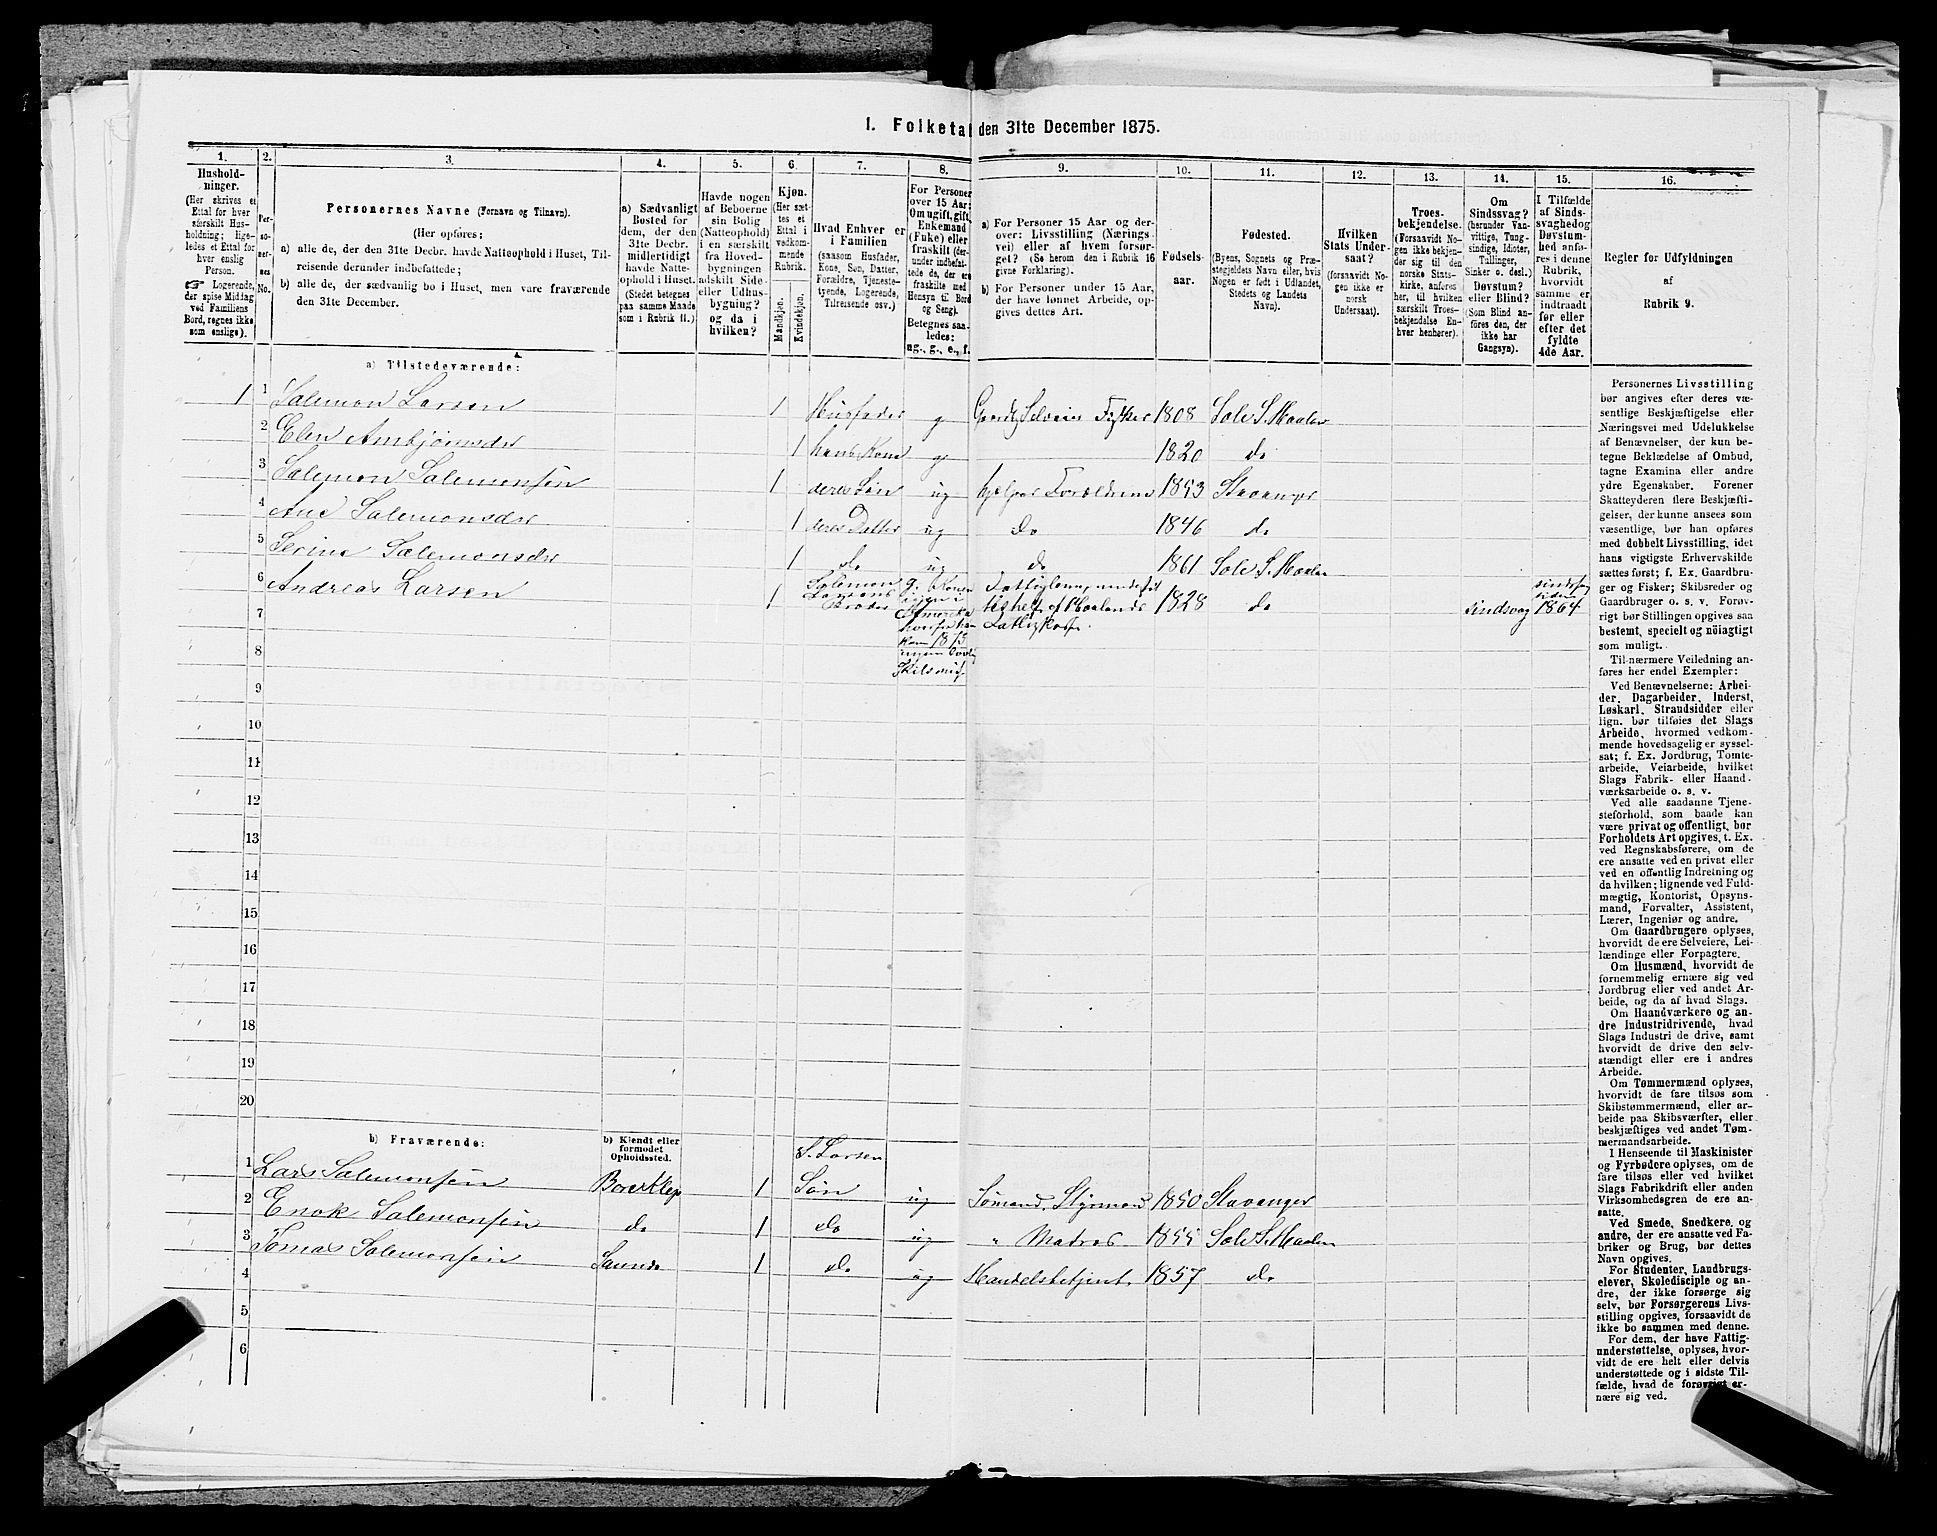 1. Folketal den 31te December 1875.
1. 2. 3. 4. 5. 6. 7. 8. 9. 10. 11. 12. 13. 14. 15. 16.
Hushold-
ninger.
(Her skrives et
Ettal for hver
særskilt Hus-
holdning; lige-
ledes et Ettal for
hver enslig
Person.
☞ Logerende,
der spise Middag
ved Familiens
Bord, regnes ikke
som enslige).
Per-
so-
ner-
nes
No.
Personernes Navne (Fornavn og Tilnavn).
(Her opføres:
a) alle de, der den 31te Decbr. havde Natteophold i Huset, Til-
reisende derunder indbefattede;
b) alle de, der sædvanlig bo i Huset, men vare fraværende
den 31te December.
a) Sædvanligt
Bosted for
dem, der den
31te Decbr.
midlertidigt
havde Natte-
ophold i Huset.
(Stedet betegnes
paa samme Maade
som i Rubrik 11.)
Havde nogen
af Beboerne
sin Bolig
(Natteophold)
i en særskilt
fra Hoved-
bygningen
adskilt Side-
eller Udhus-
bygning?
og da i
hvilken?
Kjøn.
(Her sæt-
tes et
Ettal i
vedkom-
mende
Rubrik.
Mandkjøn.
Kvindekjøn.
Hvad Enhver er
i Familien
(saasom Husfader,
Kone, Søn, Datter,
Forældre, Tjeneste-
tyende, Logerende,
Tilreisende osv.)
For Personer
over 15 Aar:
Om ugift, gift,
Enkemand
(Fuke) eller
fraskilt (der-
under indbefat-
tede de, der ere
fraskilte med
Hensyn til Bord
og Seng).
Betegnes saa-
ledes:
ug., g., e., f.
a) For Personer 15 Aar og der-
over: Livsstilling (Nærings-
vei) eller af hvem forsør-
get? (Se herom den i Rubrik 16
givne Forklaring).
b) For Personer under 15 Aar,
der have lønnet Arbeide, op-
gives dettes Art.
Fødsels-
aar.
Fødested.
(Byens, Sognets og Præ-
stegjeldets Navn eller, hvis
Nogen er født i Udlandet,
Stedets og Landets
Navn).
Hvilken
Stats Under-
saat?
(forsaavidt No-
gen ikke er
norsk
Undersaat).
Troes-
bekjendelse.
(Forsaavidt No-
gen ikke bekjen-
der sig til den
norske Stats-
kirke, anføres
her, til hvilken
særskilt Troes-
bekjendelse En-
hver henhører).
Om
Sindssvag?
(herunder Van-
vittige, Tung-
sindige, Idioter,
Tullinger,
Sinker o. desl.).
Døvstum?
eller Blind?
(Som Blind an-
føres den, der
ikke har
Gangsyn).
I Tilfælde
af Sinds-
svaghed og
Døvstum-
hed anfø-
res i denne
Rubrik,
hvorvidt
samme er
indtraadt
før eller
efter det
fyldte
4de Aar.
Regler for Udfyldningen
af
Rubrik 9.
a) Tilstedeværende:
1 1 Salemon Larsen 1 Husfader g Gaardb Selveier Fisker 1808 Sole S. Haaland
2 Elen Ambjørnsdr 1 hans Kone g 1820 do
3 Salemon Salemonsen 1 deres Søn ug hjelper Forældrene 1853 Stavanger
4 Ane Salemonsdr 1 deres Datter ug do 1846 do
5 Serine Salemonsdr 1 do ug do 1861 Sole S. Haaland
6 Andreas Larsen 1 Salemon Larsens Broder g. Konen i Amerika 1873 Skilsmis. Fattiglem, af Haalands Fattigkasse. 1828 do Sindsvag 1864
7
8
9
10
11
12
13
14
15
16
17
18
19
20
b) Fraværende:
b) Kjendt eller
formodet
Opholdssted.
1 Lars Salemonsen 1 S. Larsen Søn ug Sømand, Styrmand 1850 Stavanger
2 Enok Salemonsen do 1 do ug " Matros 1855 Sole S. Haaland
3 Tomas Salemonsen 1 do ug Handelsbetjent 1857 do
4
5
6
Personernes Livsstilling
bør angives efter deres væ-
sentlige Beskjæftigelse eller
Næringsvei med Udelukkelse
af Benævnelser, der kun be-
tegne Beklædelse af Ombud,
tagne Examina eller andre
ydre Egenskaber. Forener
Skatteyderen flere Beskjæfti-
gelser, der kunne ansees som
væsentlige, bør han opføres
med dobbelt Livsstilling, idet
hans vigtigste Erhvervskilde
sættes først; f. Ex. Gaardbru-
ger og Fisker; Skibsreder og
Gaardbruger o. s. v. Forøv-
rigt bør Stillingen opgives saa
bestemt, specielt og nöiagtigt
som muligt.
Til nærmere Veiledning an-
føres her endel Exempler:
Ved Benævnelserne: Arbei-
der, Dagarbeider, Inderst,
Løskarl, Strandsidder eller
lign. bør tilføies det Slags
Arbeide, hvormed vedkom-
mende hovedsagelig er syssel-
sat; f. Ex. Jordbrug, Tomte-
arbeide, Veiarbeide, hvilket
Slags Fabrik- eller Haand-
værksarbeide o. s. v.
Ved alle saadanne Tjene-
steforhold, som baade kan
være privat og offentligt, bør
Forholdets Art opgives, t. Ex.
ved Regnskabsførere, om de
ere ansatte ved en privat eller
ved en offentlig Indretning og
da hvilken; lignende ved Fuld-
mægtig, Kontorist, Opsyns-
mand, Forvalter, Assistent,
Lærer, Ingeniør og andre.
Om Gaardbrugere oplyses,
hvorvidt de ere Selveiere, Lei-
lændinge eller Forpagtere.
Om Husmænd, hvorvidt de
fornemmelig ernære sig ved
Jordbrug eller ved andet Ar-
beide, og da af hvad Slags.
Om Haandværkere og an-
dre Industridrivende, hvad
Slags Industri de drive, samt
hvorvidt de drive den selv-
stændigt eller ere i andres
Arbeide.
Om Tømmermænd oplyses,
hvorvidt de fare tilsøs som
Skibstømmermænd, eller ar-
beide paa Skibsværfter, eller
beskjæftiges ved andet Tøm-
mermandsarbeide.
I Henseende til Maskinister
og Fyrbødere oplyses, om de
fare tilsøs eller ved hvilket
Slags Fabrikdrift eller anden
Virksomhedsgren de ere an-
satte.
Ved Smede, Snedkere, og
andre, der ere ansatte ved Fa-
briker og Brug, bør dettes
Navn opgives.
For Studenter, Landbrugs-
elever, Skoledisciple og an-
dre, der ikke forsørge sig
selv, bør Forsørgerens Livs-
stilling opgives, forsaavidt de
ikke bo sammen med denne.
For dem, der have Fattig-
understøttelse, oplyses, hvor-
vidt de ere helt eller delvis
understøttede og i sidste Til-
fælde, hvad de forøvrigt er-
nære sig ved.